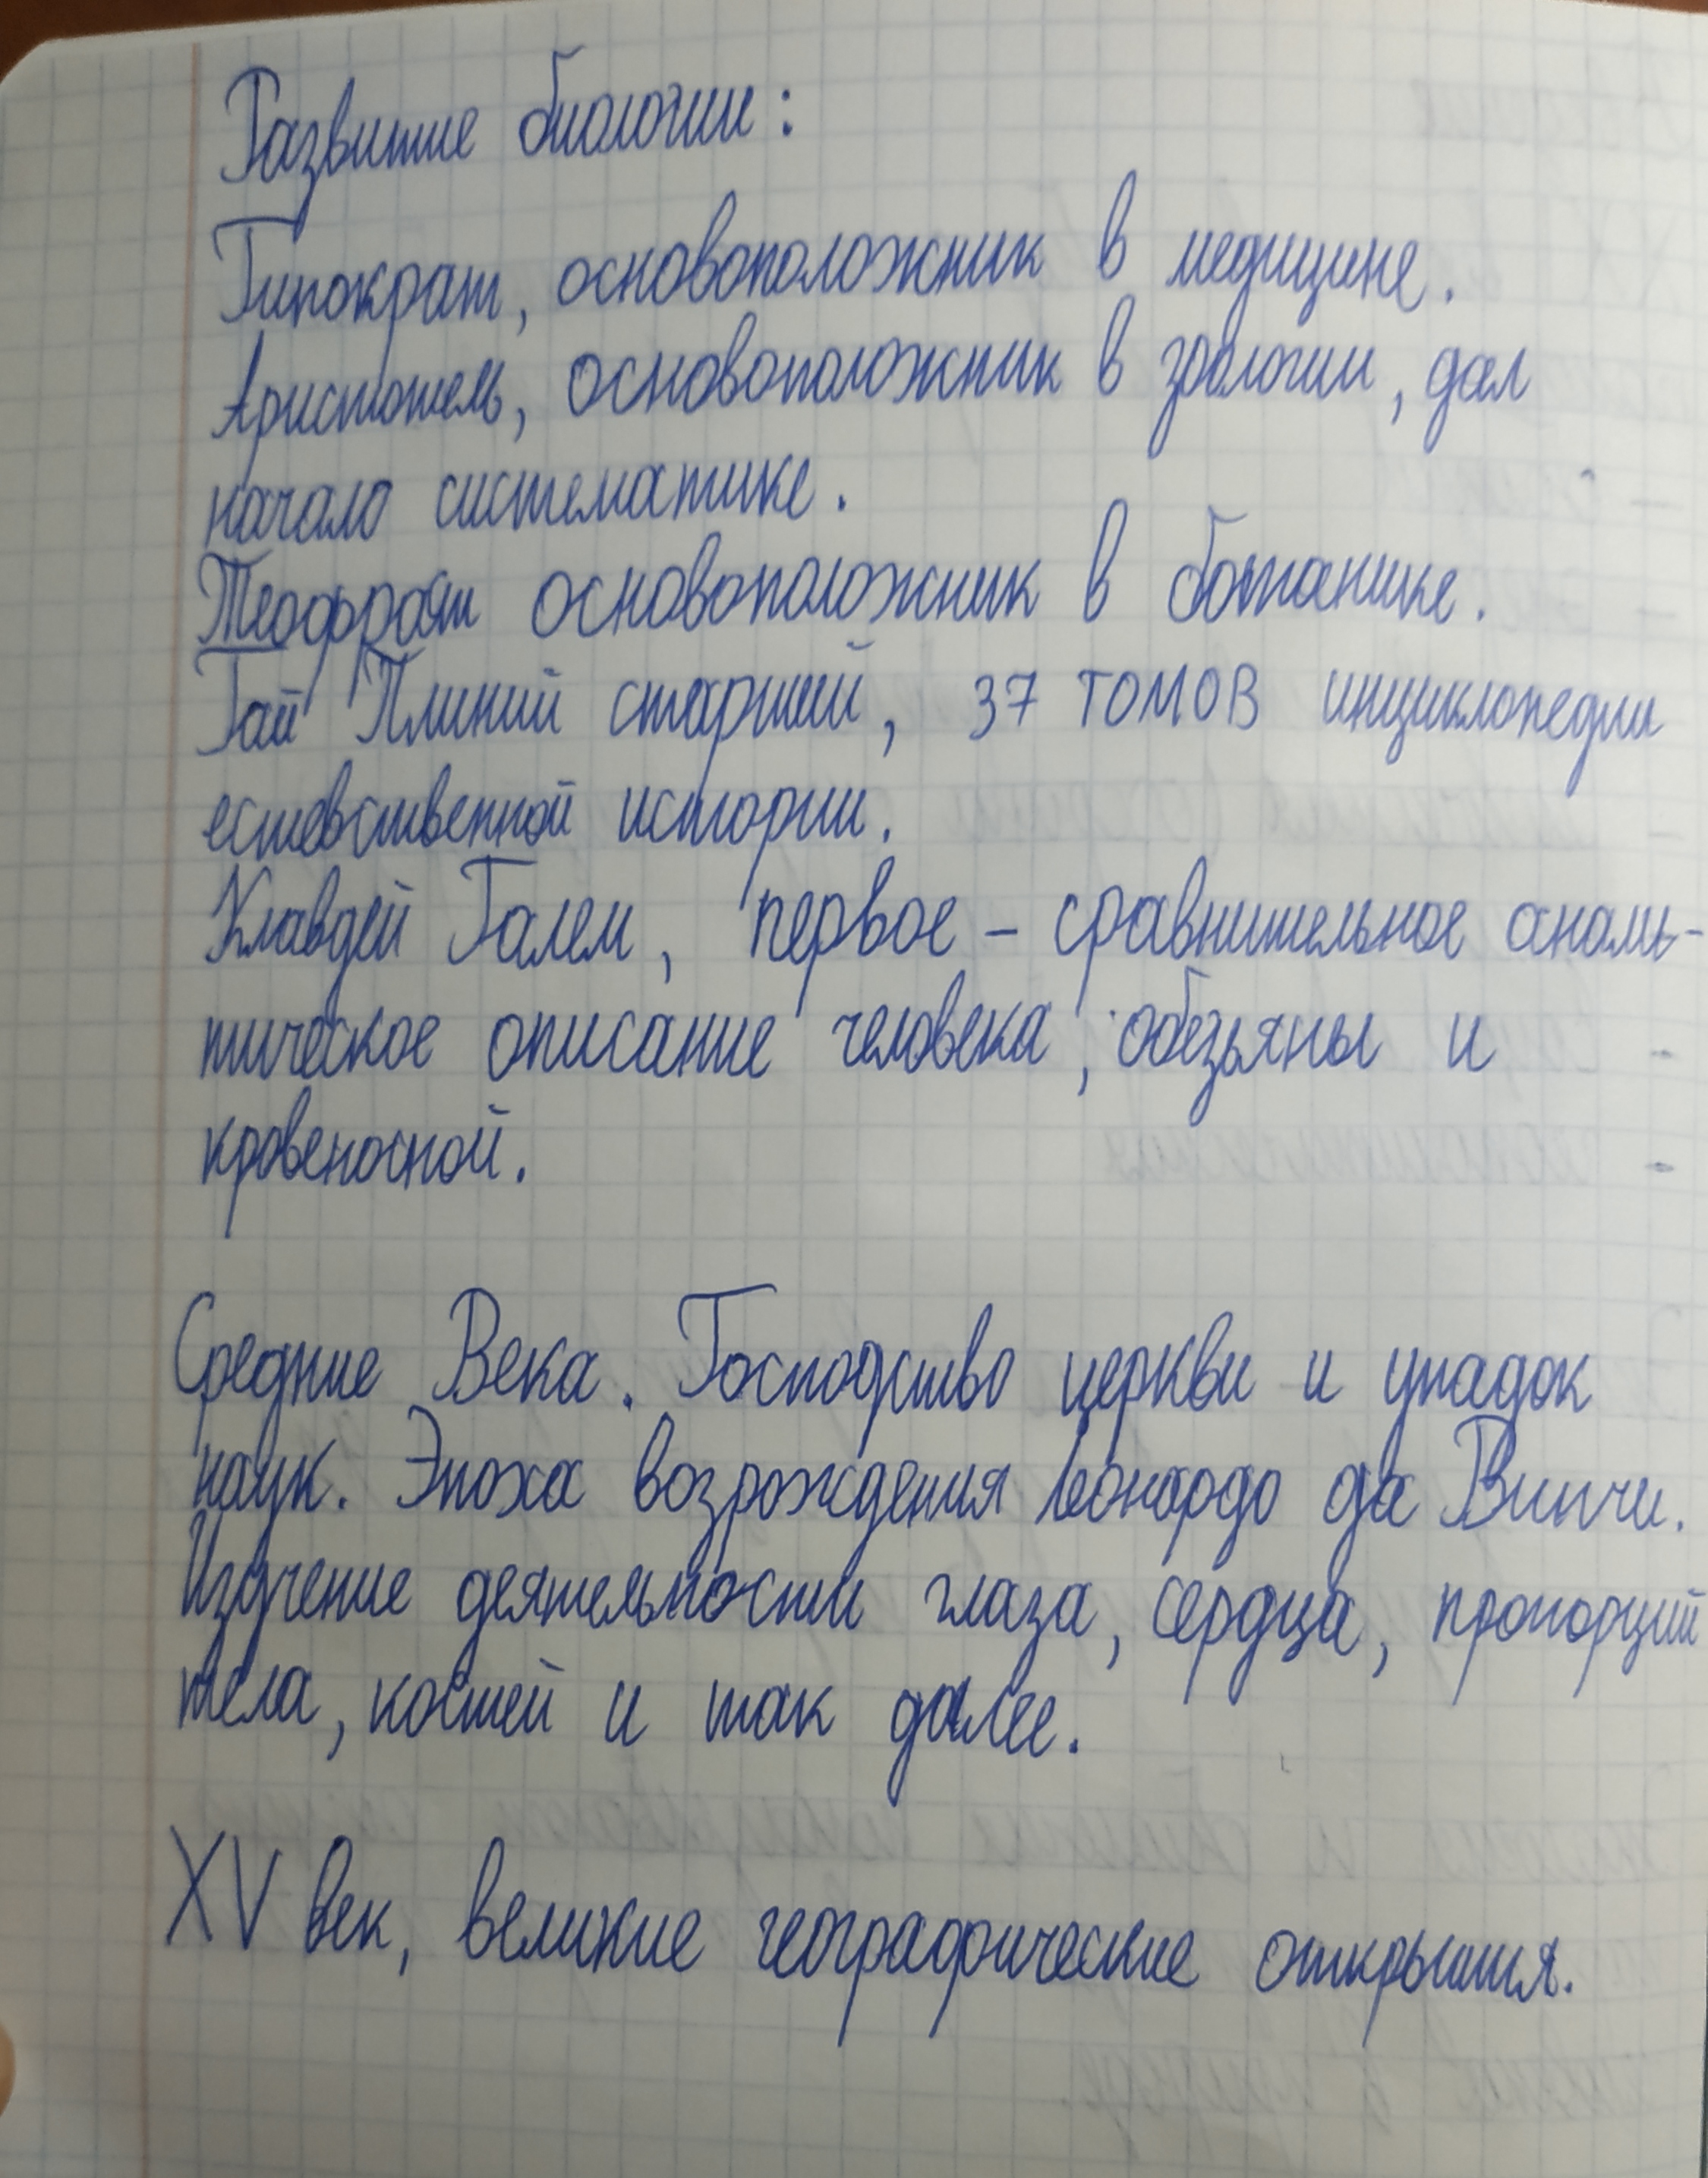 Развитие биологии:
Гипократ, основоположник в медицине.
Аристотель, основоположник в зоологии, дал
начало систематике.
Теофраст основоположник в ботанике.
Гай Плиний старший, 37 томов инциклопедии
естевственной истории.
Клавдей Гален, первое - сравнительное аналы-
тическое описание человека, обезьяны и
кровеносной.
Средние Века. Господство церкви и упадок
наук. Эпоха возрождения Леонардо да Винчи.
Изучение деятельности глаза, сердца, пропорций
тела, костей и так далее.
XV век, великие географические открытия.